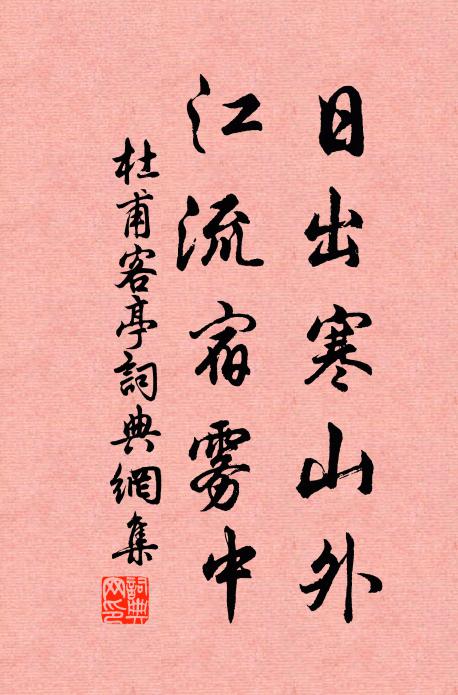 日出寒山外
江流宿雾中
杜甫客亭詞典網集
詞典網印